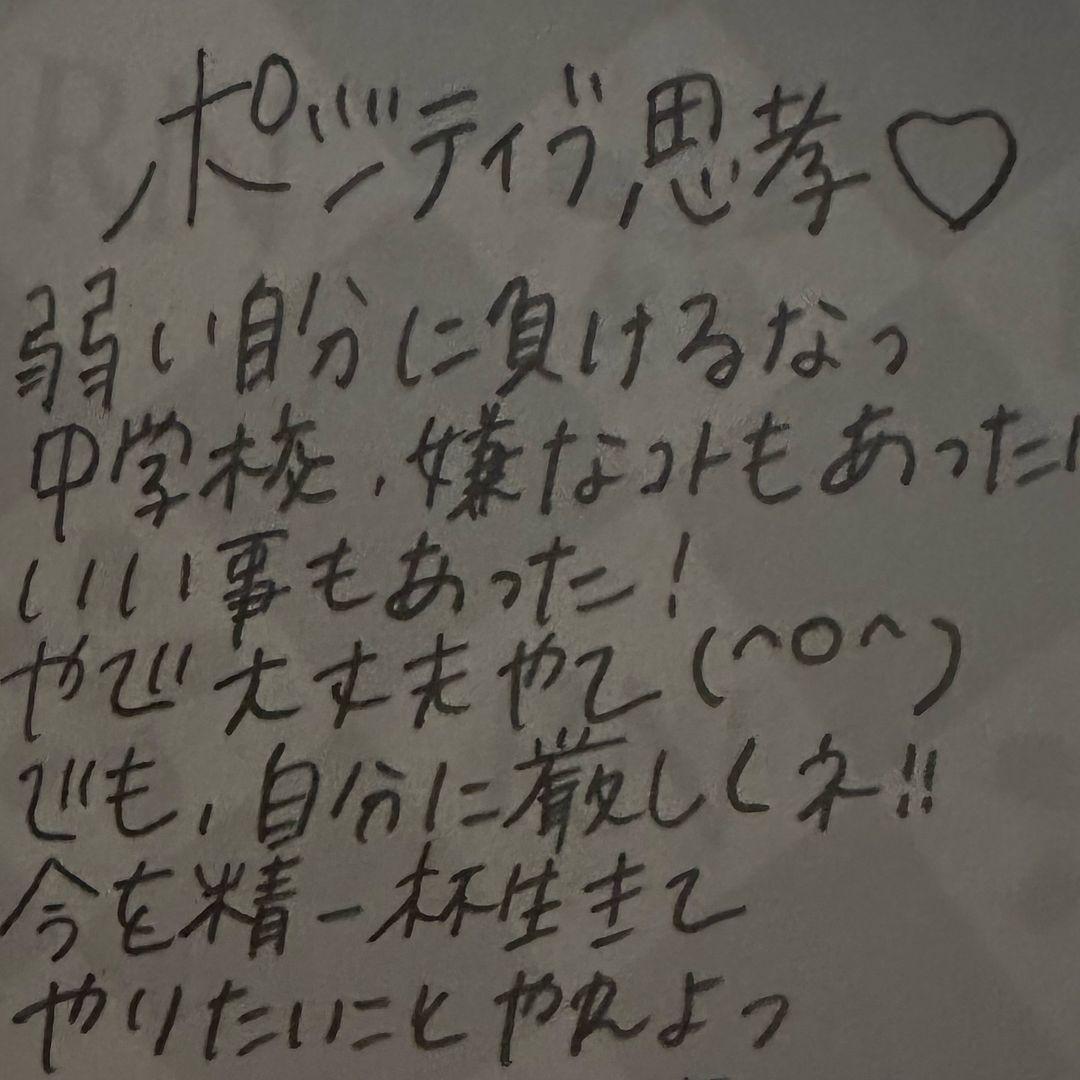 ポジティブ思考♡
弱い自分に負けるなっ
中学校、嫌なコトもあった
いい事もあった!
やで大丈夫やて(^o^)
でも、自分に厳しくネ!!
今を精一杯生きて
やりたいことやれよっ